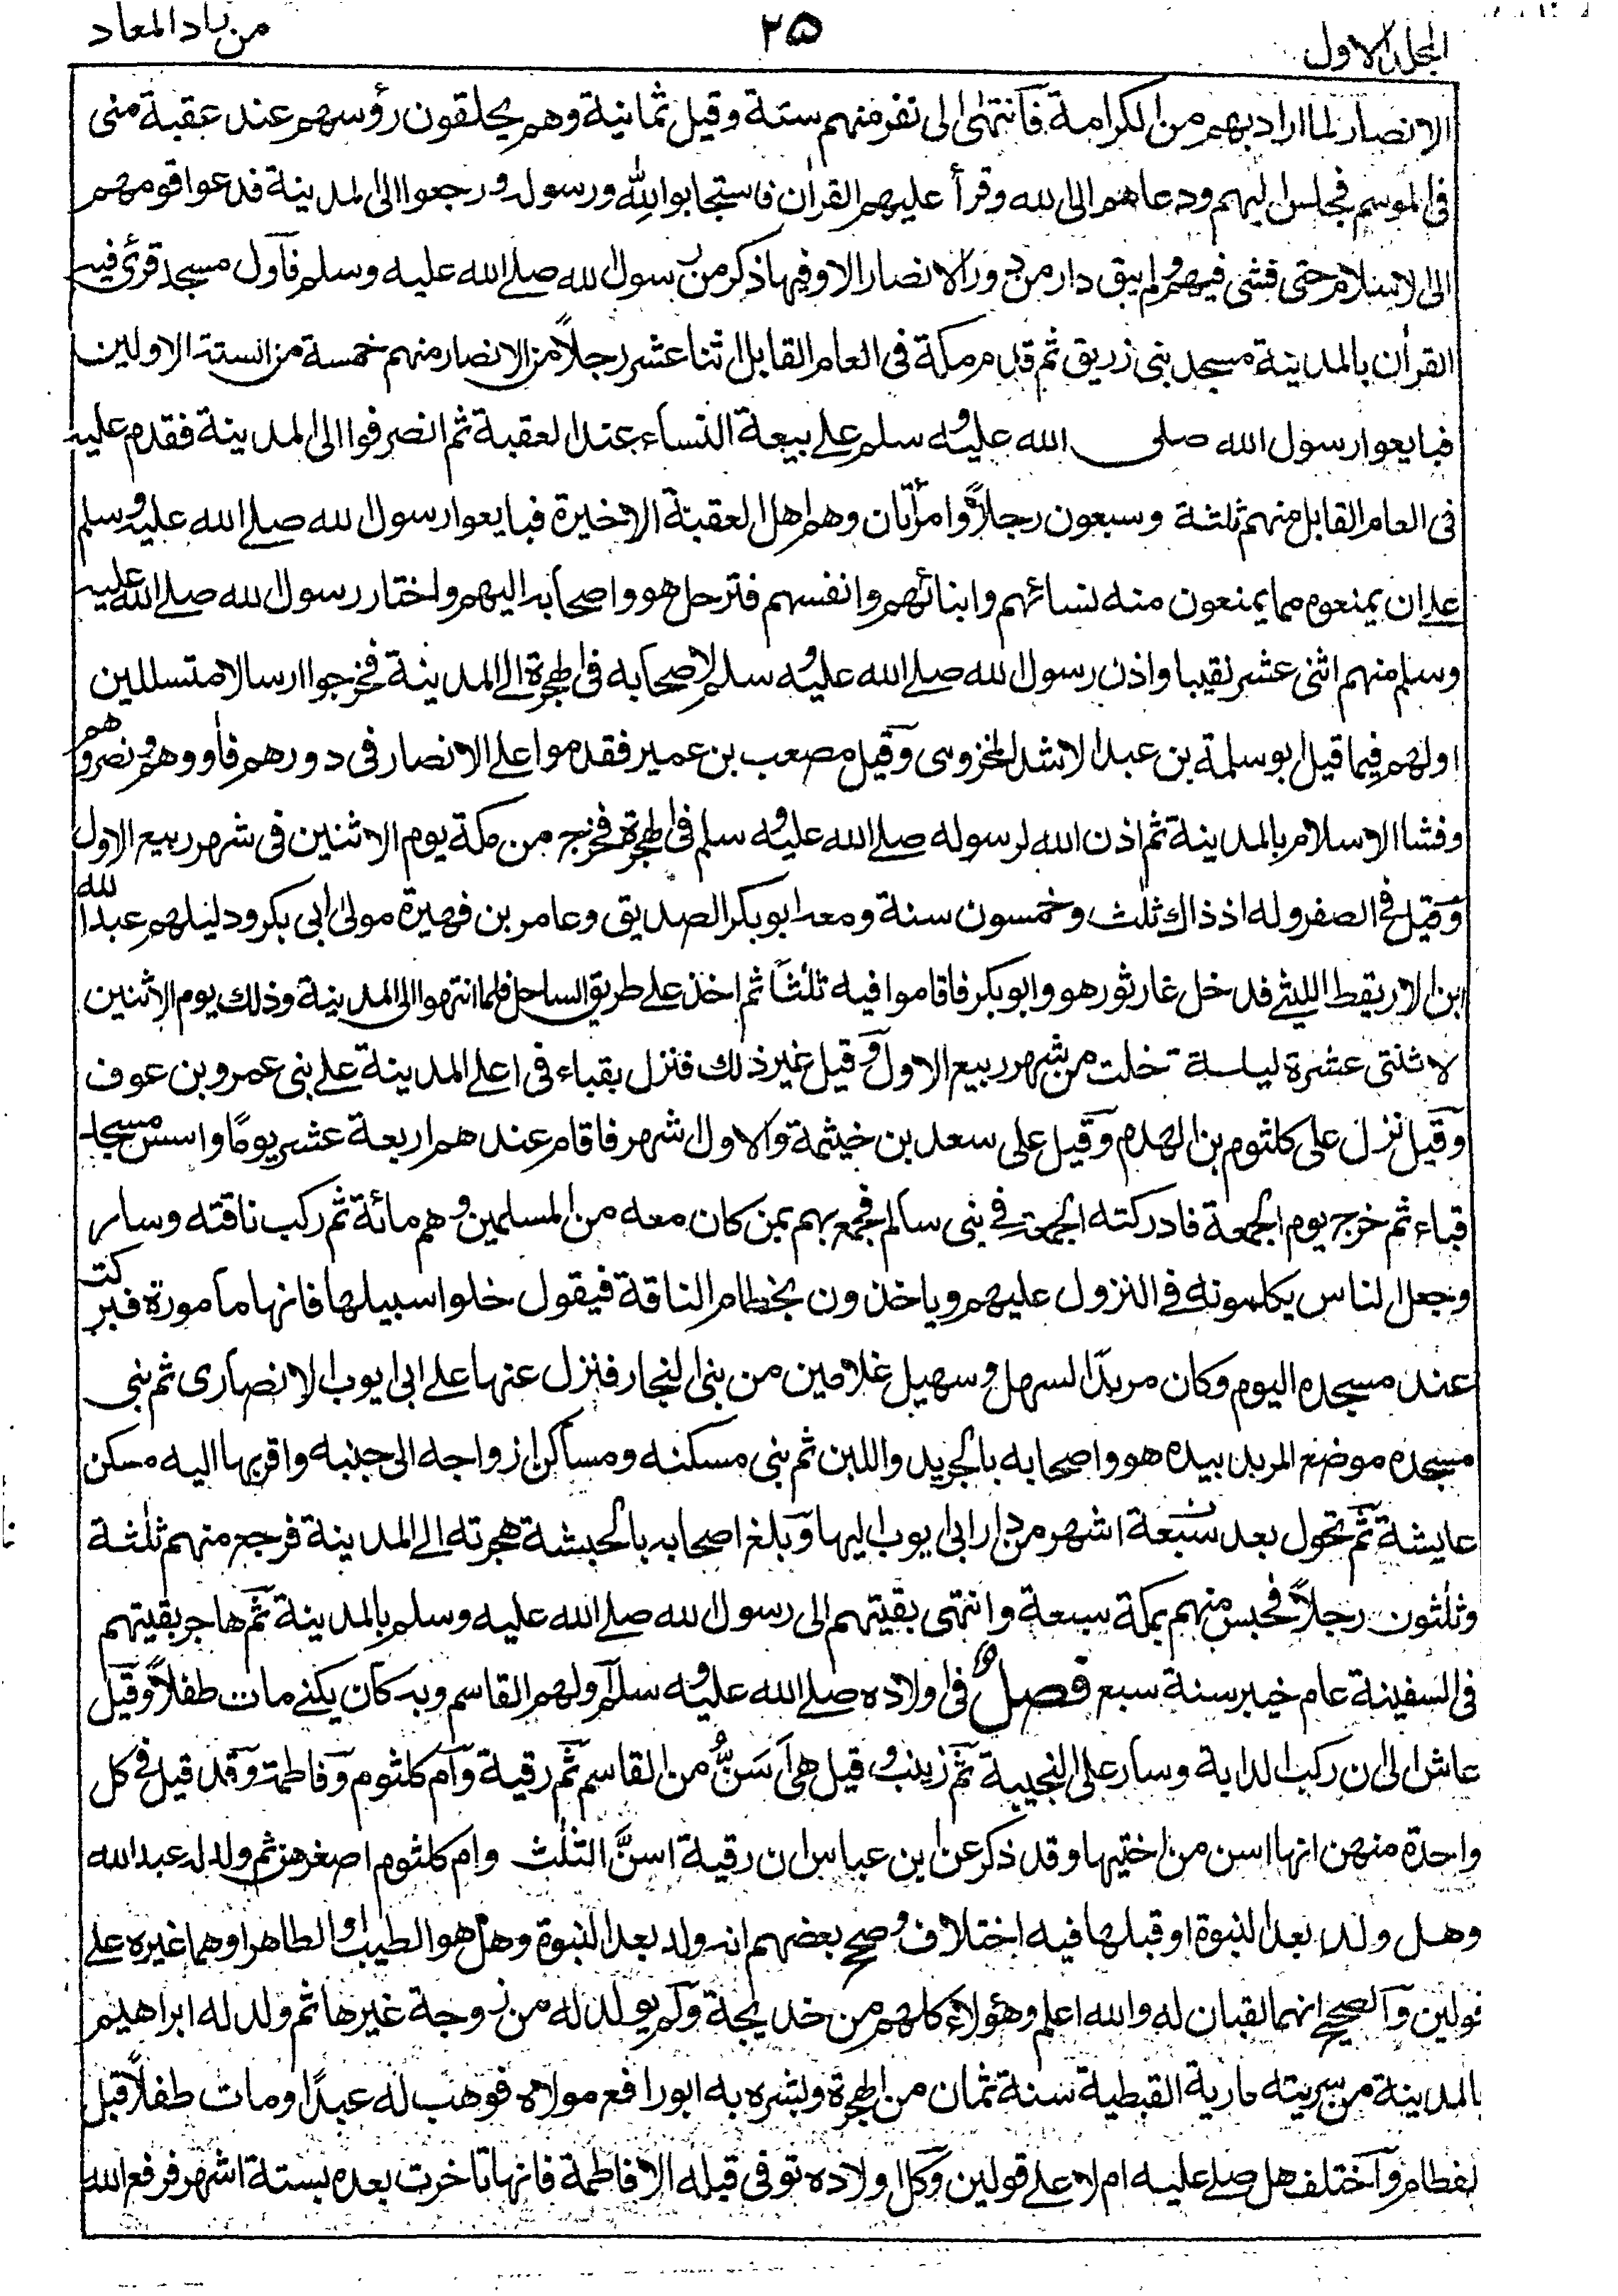 المجلد الاول
٢٥
من زاد المعاد
الانصار لما اراد بهم من الكرامة فانتهى الى نفر منهم ستة وقيل ثمانية وهم يحلقون رؤسهم عند عقبة منى
فى الموسم فجلس اليهم ودعاهم الى الله وقرأ عليهم القرأن فاستجابوا لله ورسوله ورجعوا الى المدينة فدعوا قومهم
الى الاسلام حتى فشى فيهم ولم يبق دار من دور الانصار الا وفيها ذكر من رسول الله صلے الله عليه وسلم فاول مسجد قرئ فيه
القرأن بالمدينة مسجد بنى زريق ثم قدم مكة فى العام القابل اثنا عشر رجلاً من الانصار منهم خمسة من الستة الاولين
فبايعوا رسول الله صلى الله عليه وسلم علے بيعة النساء عند العقبة ثم انصرفوا الى المدينة فقدم عليه
فى العام القابل منهم ثلثة وسبعون رجلاً وامرأتان وهم اهل العقبة الاخيرة فبايعوا رسول الله صلے الله عليه وسلم
علے ان يمنعوه مما يمنعون منه نسائهم وابنائهم وانفسهم فترحل هو واصحابه اليهم واختار رسول الله صلے الله عليه
وسلم منهم اثنى عشر نقيبا واذن رسول الله صلے الله عليه وسلم لاصحابه فى الهجرة الے المدينة فخرجوا ارسالا متسللين
اولهم فيما قيل ابو سلمة بن عبد الاشد المخزومى وقيل مصعب بن عمير فقدموا علے الانصار فى دورهم فأووهم ونصروهم
وفشا الاسلام بالمدينة ثم اذن الله لرسوله صلے الله عليه وسلم فى الهجرة فخرج من مكة يوم الاثنين فى شهر ربيع الاول
وقيل فى الصفر وله اذ ذاك ثلث وخمسون سنة ومعه ابو بكر الصديق وعامر بن فهيرة مولى ابى بكر ودليلهم عبد الله
بن الاريقط الليثے فدخل غار ثور هو وابو بكر فاقاموا فيه ثلثاً ثم اخذ علے طريق الساحل فلما انتهوا الى المدينة وذلك يوم الاثنين
لاثنتى عشرة ليلة خلت من شهر ربيع الاول وقيل غير ذلك فنزل بقباء فى اعلے المدينة علے بنى عمرو بن عوف
وقيل نزل على كلثوم بن الهدم وقيل على سعد بن خيثمة والاول اشهر فاقام عندهم اربعة عشر يوماً واسس مسجد
قباء ثم خرج يوم الجمعة فادركته الجمعة فے بنى سالم فجمع بهم بمن كان معه من المسلمين وهم مائة ثم ركب ناقته وسار
وجعل الناس يكلمونه فے النزول عليهم وياخذون بخطام الناقة فيقول خلوا سبيلها فانها مامورة فبركت
عند مسجده اليوم وكان مربدا لسهل وسهيل غلامين من بنى النجار فنزل عنها علے ابى ايوب الانصارى ثم بنى
مسجده موضع المربد بيده هو واصحابه بالجريد واللبن ثم بنى مسكنه ومساكن ازواجه الى جنبه واقربها اليه مسكن
عايشة ثم تحول بعد سبعة اشهر من دار ابى ايوب اليها وبلغ اصحابه بالحبشة هجرته الے المدينة فرجع منهم ثلثة
وثلثون رجلاً فحبس منهم بمكة سبعة وانتهى بقيتهم الى رسول الله صلے الله عليه وسلم بالمدينة ثم هاجر بقيتهم
فى السفينة عام خيبر سنة سبع فصل فى اولاده صلے الله عليه وسلم اولهم القاسم وبه كان يكنے مات طفلاً وقيل
عاش الى ان ركب الدابة وسار على النجيبة ثم زينب وقيل هى اَسَنُّ من القاسم ثم رقية وام كلثوم وفاطمة وقد قيل فے كل
واحدة منهن انها اسن من اختيها وقد ذكر عن ابن عباس ان رقية اسنَّ الثلٰث وام كلثوم اصغرهن ثم ولد له عبد الله
وهل ولد بعد النبوة او قبلها فيه اختلاف وصحح بعضهم انه ولد بعد النبوة وهل هو الطيب والطاهر او هما غيره علے
قولين والصحيح انهما لقبان له والله اعلم وهؤلاء كلهم من خديجة ولم يولد له من زوجة غيرها ثم ولد له ابراهيم
بالمدينة من سريته مارية القبطية سنة ثمان من الهجرة وبشره به ابو رافع مولاه فوهب له عبدًا ومات طفلاً قبل
الفطام واختلف هل صلے عليه ام لا علے قولين وكل اولاده توفى قبله الا فاطمة فانها تاخرت بعده بستة اشهر فرفع الله